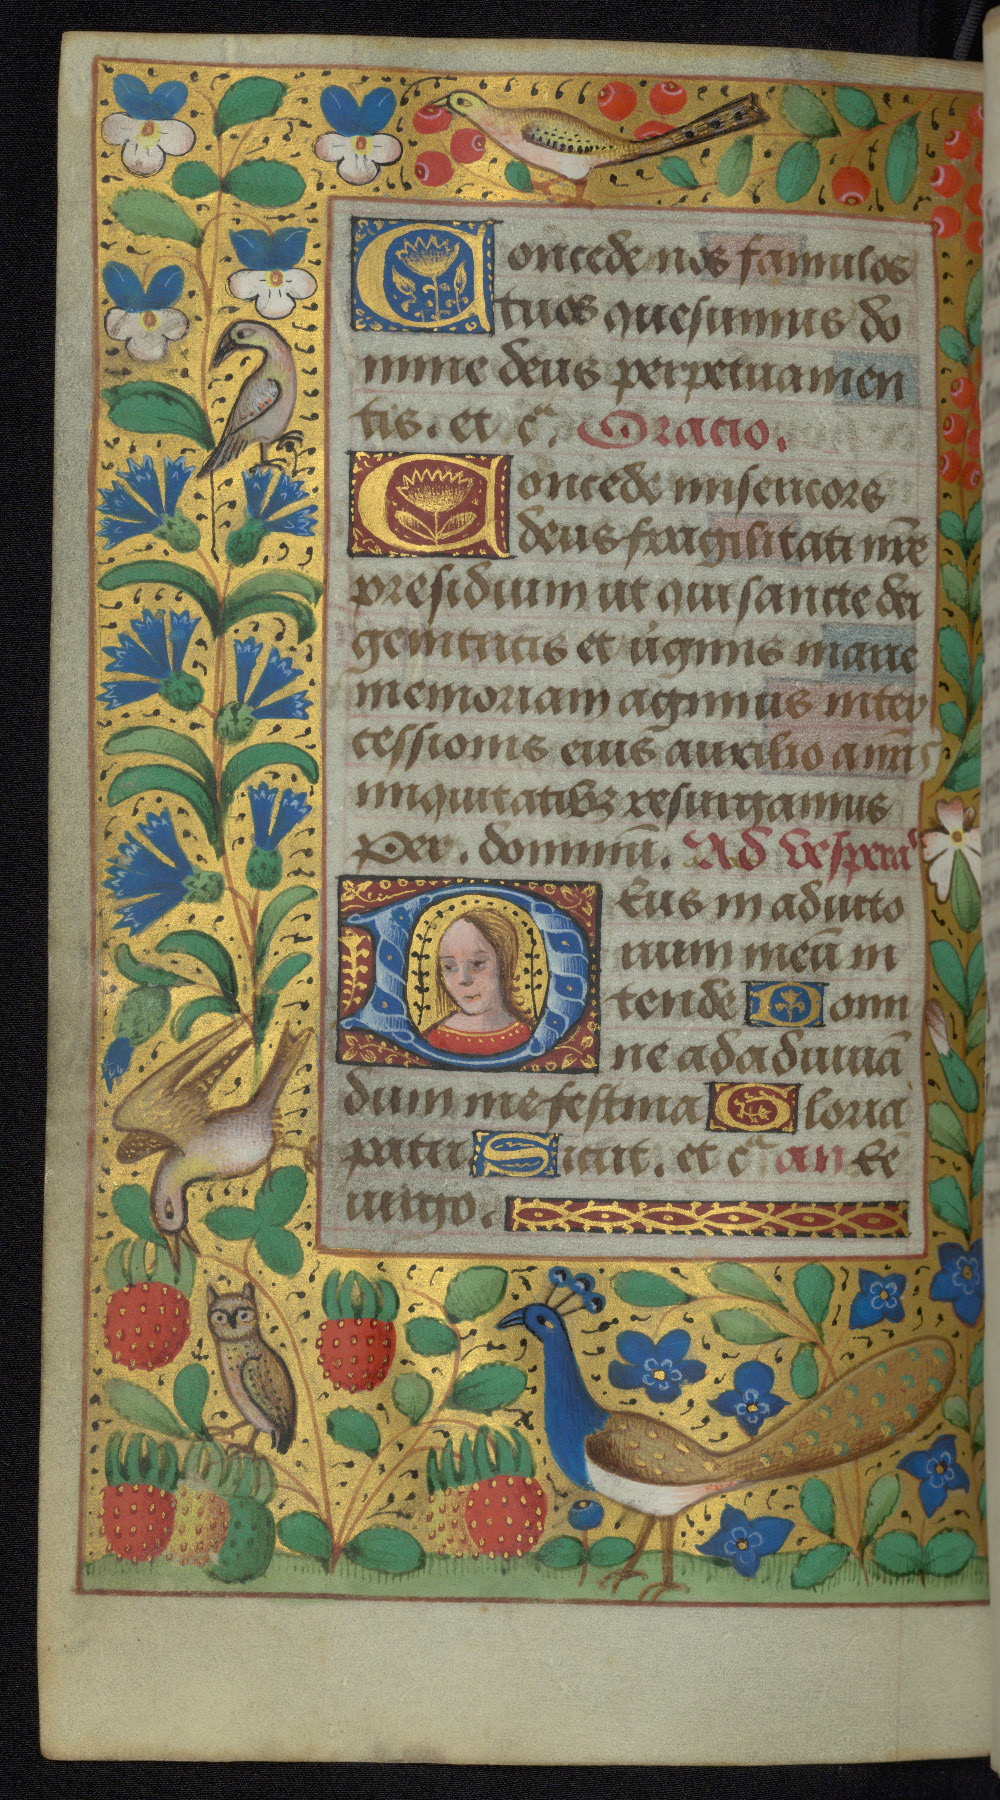 Concede nos famulos
tuos quesumus do
mine deus perpetua men
tis. et cͣ. Oracio.
Concede misericors
deus fragilitati nr̄e
presidium ut qui sancte dei
genitricis et ūginis marie
memoriam agimus inter
cessionis eius auxilio a nr̄is
iniquitatibꝫ resurgamus
Per. dominū. Ad vesperaꝰ
Deus in adiuto
rium meū in
tende Domi
ne ad adiuuā
dum me festina Gloria
patri Sicut. et cͣ an bē
uirgo.